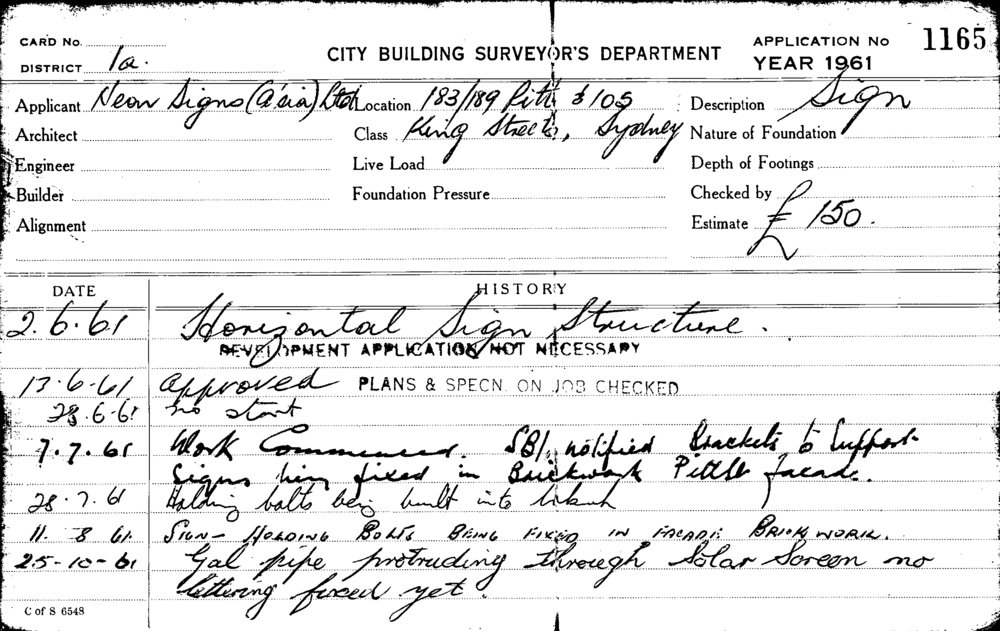 CARD No.
CITY BUILDING SURVEYOR'S DEPARTMENT
APPLICATION No 1165
DISTRICT 1a.
YEAR 1961
Applicant Neon Signs (A'sia) Ltd Location 183/189 Pitt & 105 Description Sign
Architect Class King Streets, Sydney Nature of Foundation
Engineer Live Load Depth of Footings
Builder Foundation Pressure Checked by
Alignment Estimate £ 150.
DATE HISTORY
2.6.61 Horizontal Sign Structure.
DEVELOPMENT APPLICATION NOT NECESSARY
13.6.61 approved PLANS & SPECN. ON JOB CHECKED
28.6.61 no start
7.7.61 Work Commenced. SBI. notified Brackets to Support
Signs being fixed in Brickwork Pitt St facade.
28.7.61 Holding bolts being built into
11. 8 61. SIGN - HOLDING BOLTS BEING FIXED IN FACADE BRICKWORK.
25-10-61 Gal pipe protruding through Solar Screen no
lettering fixed yet.
C of S 6548